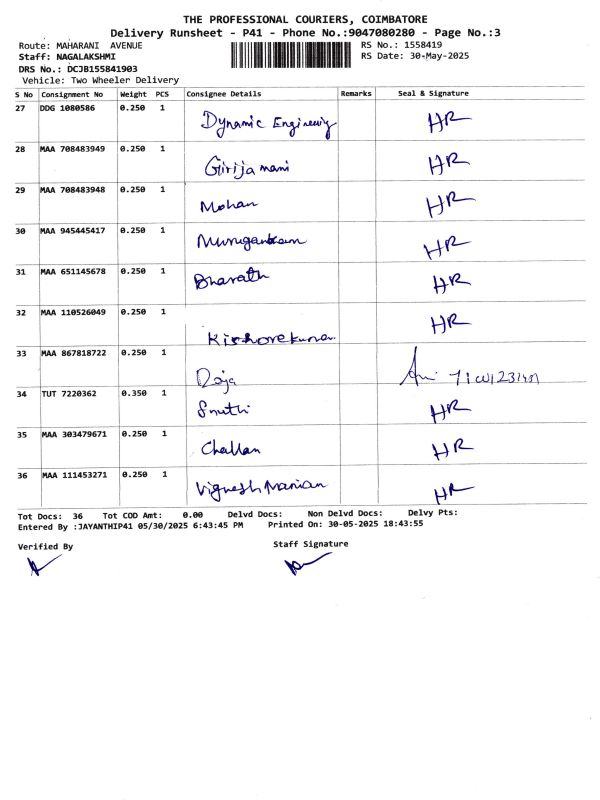 THE PROFESSIONAL COURIERS, COIMBATORE
Delivery Runsheet - P41 - Phone No.:9047080280 - Page No.:3
Route: MAHARANI AVENUE RS No.: 1558419
Staff: NAGALAKSHMI RS Date: 30-May-2025
DRS No.: DCJB155841903
Vehicle: Two Wheeler Delivery
S No Consignment No Weight PCS Consignee Details Remarks Seal & Signature
27 DDG 1080586 0.250 1 Dynamic HR
28 MAA 708483949 0.250 1 Girija mani HR
29 MAA 708483948 0.250 1 Mohan HR
30 MAA 945445417 0.250 1 HR
31 MAA 651145678 0.250 1 Bharath HR
32 MAA 110526049 0.250 1 Kishorekumar HR
33 MAA 867818722 0.250 1
34 TUT 7220362 0.350 1 HR
35 MAA 303479671 0.250 1 Challan HR
36 MAA 111453271 0.250 1 HR
Tot Docs: 36 Tot COD Amt: 0.00 Delvd Docs: Non Delvd Docs: Delvy Pts:
Entered By :JAYANTHIP41 05/30/2025 6:43:45 PM Printed On: 30-05-2025 18:43:55
Verified By Staff Signature